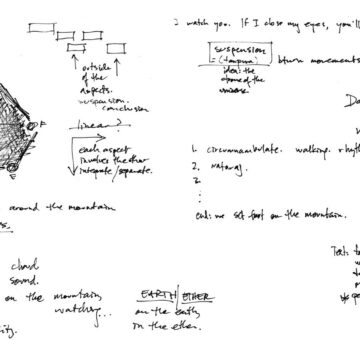 I watch you. If I close my eyes, you'll
suspension
= (tanpura)
idea: the
drone of the
universe.
btwn movements
outside
of the
aspects.
suspension.
conclusion
linear?
each aspect
involves the other
integrate/separate.
F
E
1. circumambulate. walking. rhyth
2. nataraj.
2
end: we set foot on the mountain.
around the mountain
cloud
sound.
on the mountain,
watching...
EARTH/ETHER
on the earth,
in the ether.
Text: to